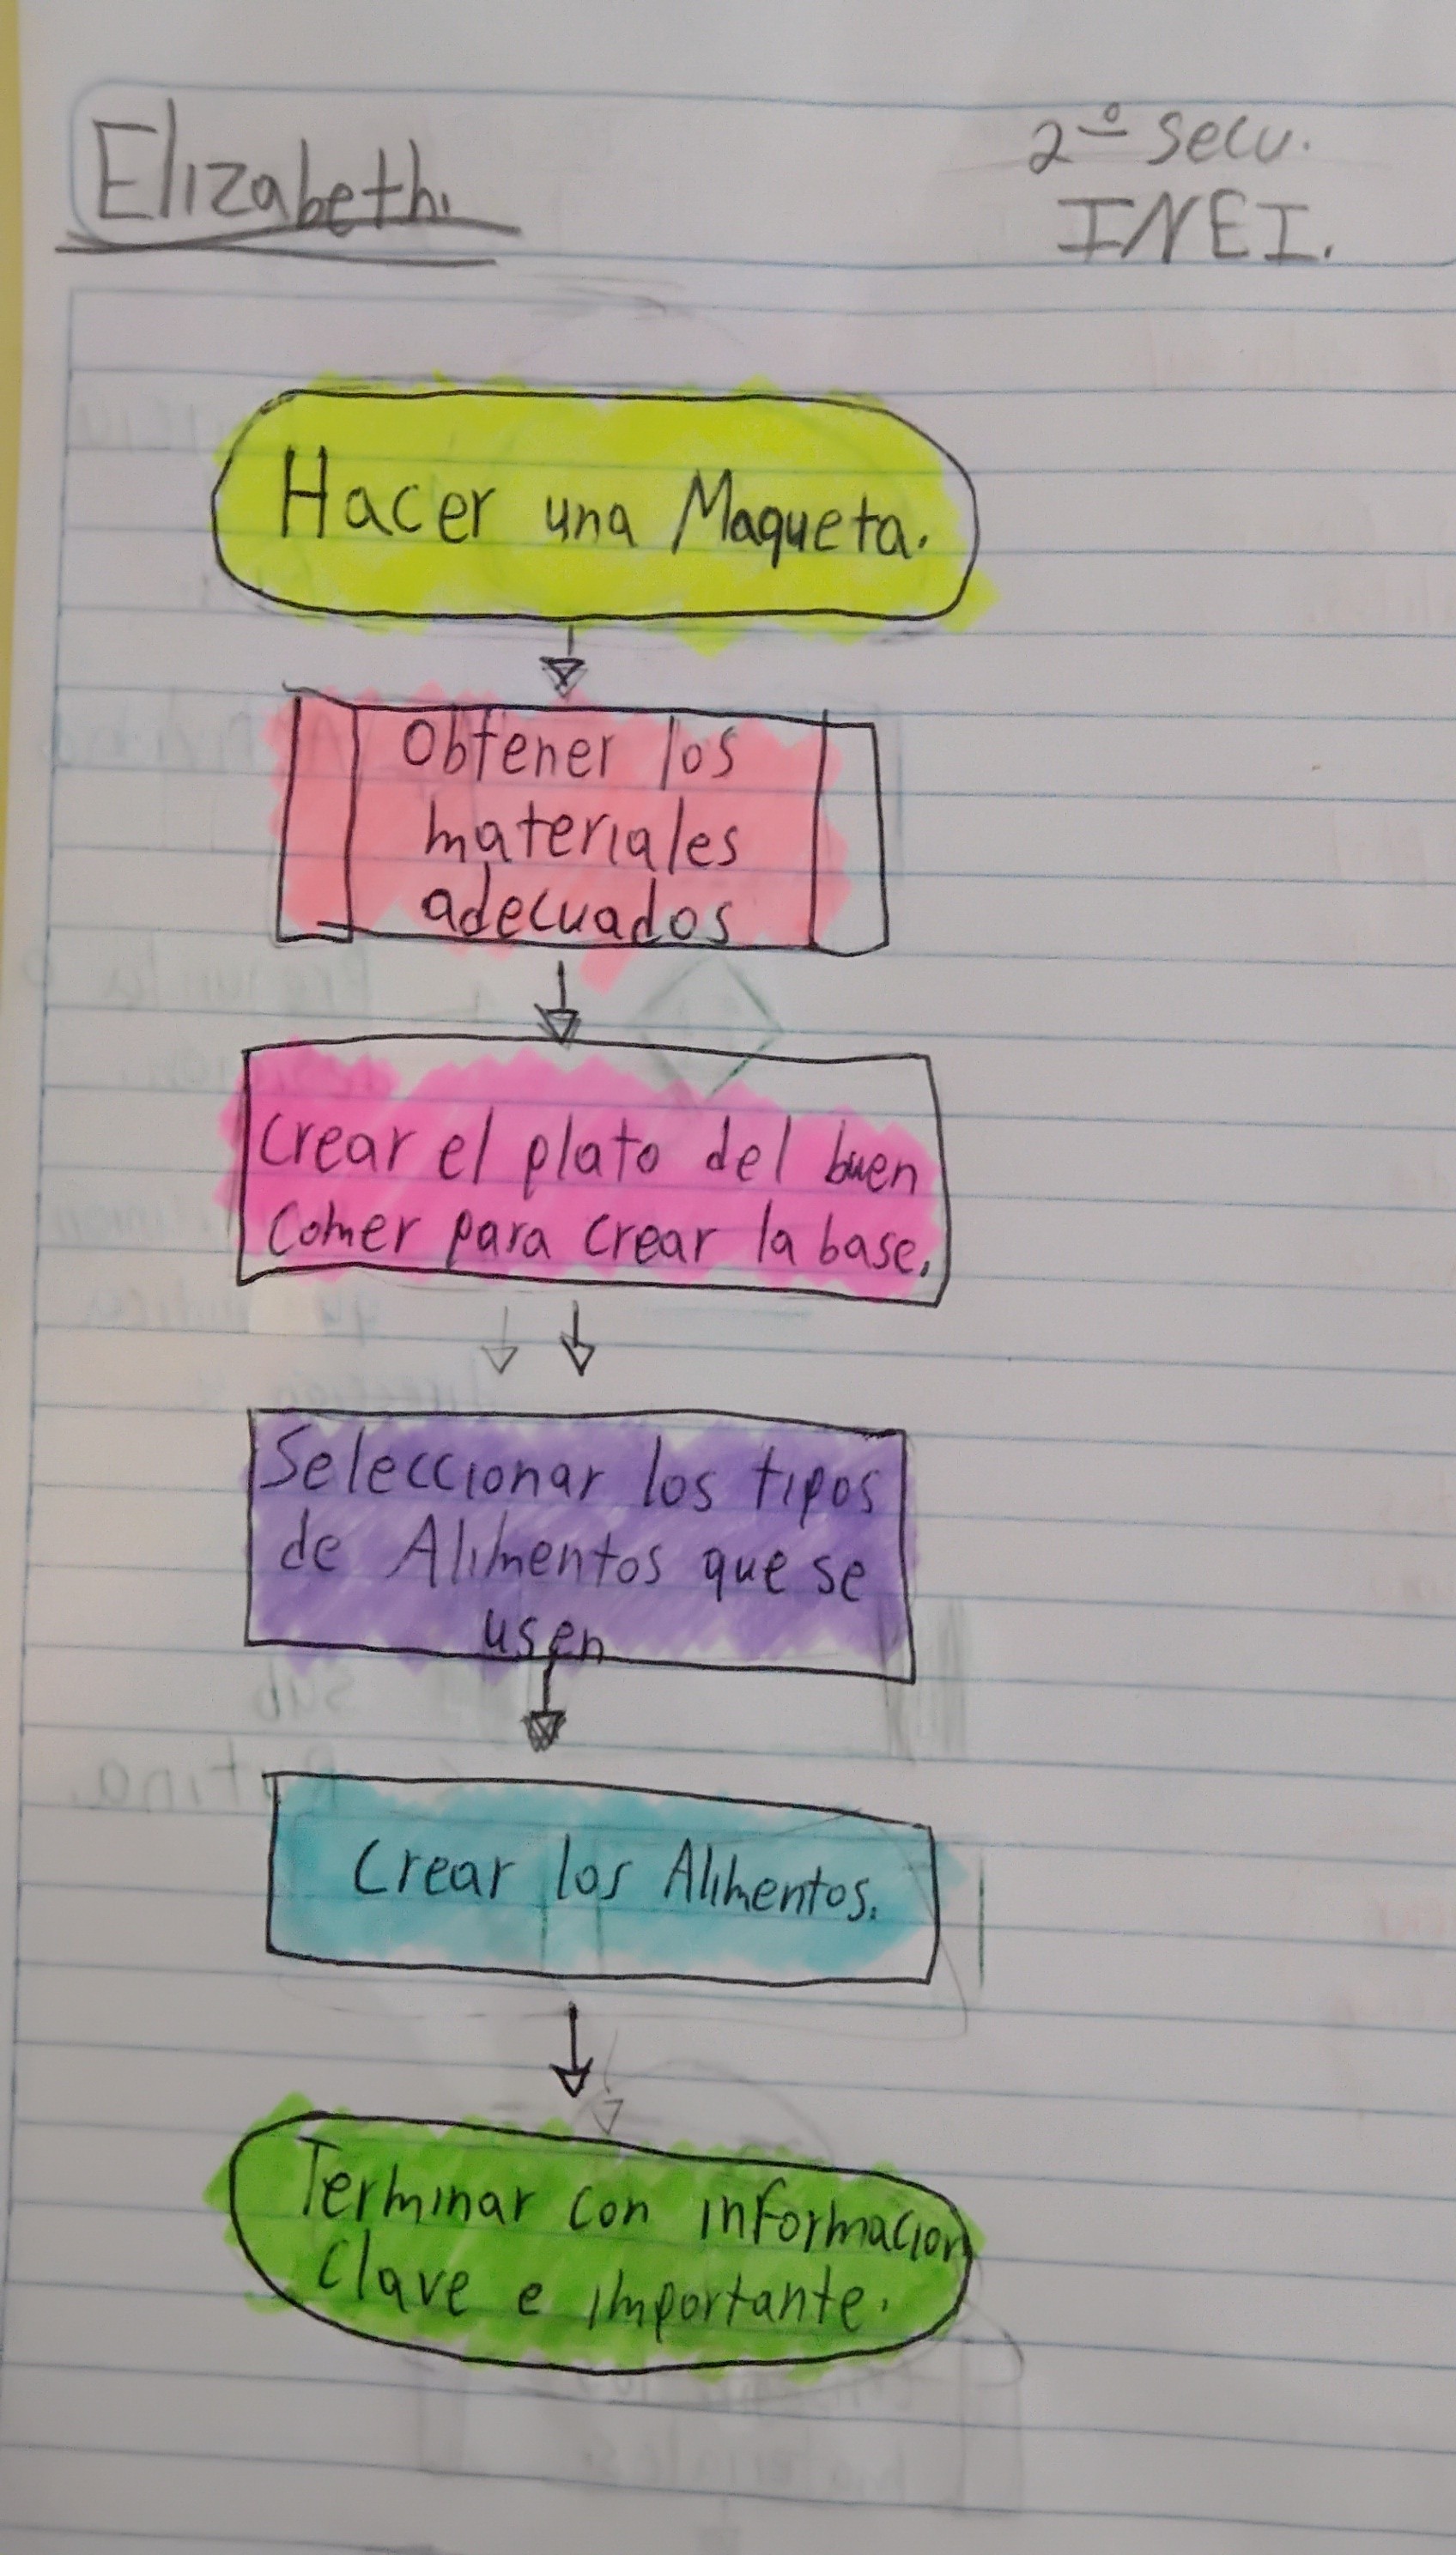 Elizabeth.
2º secu.
INEI.
Hacer una Maqueta.
Obtener los
materiales
adecuados
Crear el plato del buen
Comer para crear la base.
Seleccionar los tipos
de Alimentos que se
usen
Crear los Alimentos.
Terminar con informacion
Clave e importante.